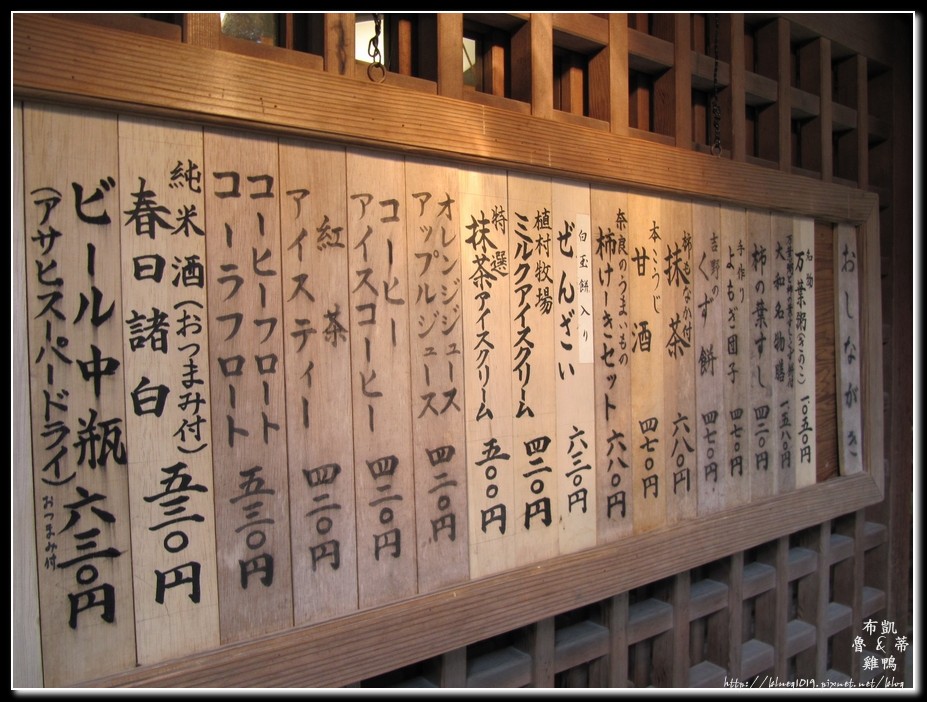 おしながき
名物
万葉粥(きのこ) 一、〇五〇円
大和名物膳 一、五八〇円
柿の葉すし 四二〇円
手作り
よもぎ団子 四七〇円
吉野の
くず餅 四七〇円
柿もなか付
抹茶 六八〇円
本こうじ
甘酒 四七〇円
奈良のうまいもの
柿けーきセット 六八〇円
白玉餅入り
ぜんざい 六三〇円
植村牧場
ミルクアイスクリーム 四二〇円
特選
抹茶アイスクリーム 五〇〇円
オレンジジュース
アップルジュース 四二〇円
コーヒー
アイスコーヒー 四二〇円
紅茶
アイスティー 四二〇円
コーヒーフロート
コーラフロート 五三〇円
純米酒(おつまみ付)
春日諸白 五三〇円
ビール中瓶 六三〇円
(アサヒスーパードライ)
おつまみ付
布凱
魯&蒂
雞鴨
http://blueq1019.pixnet.net/blog